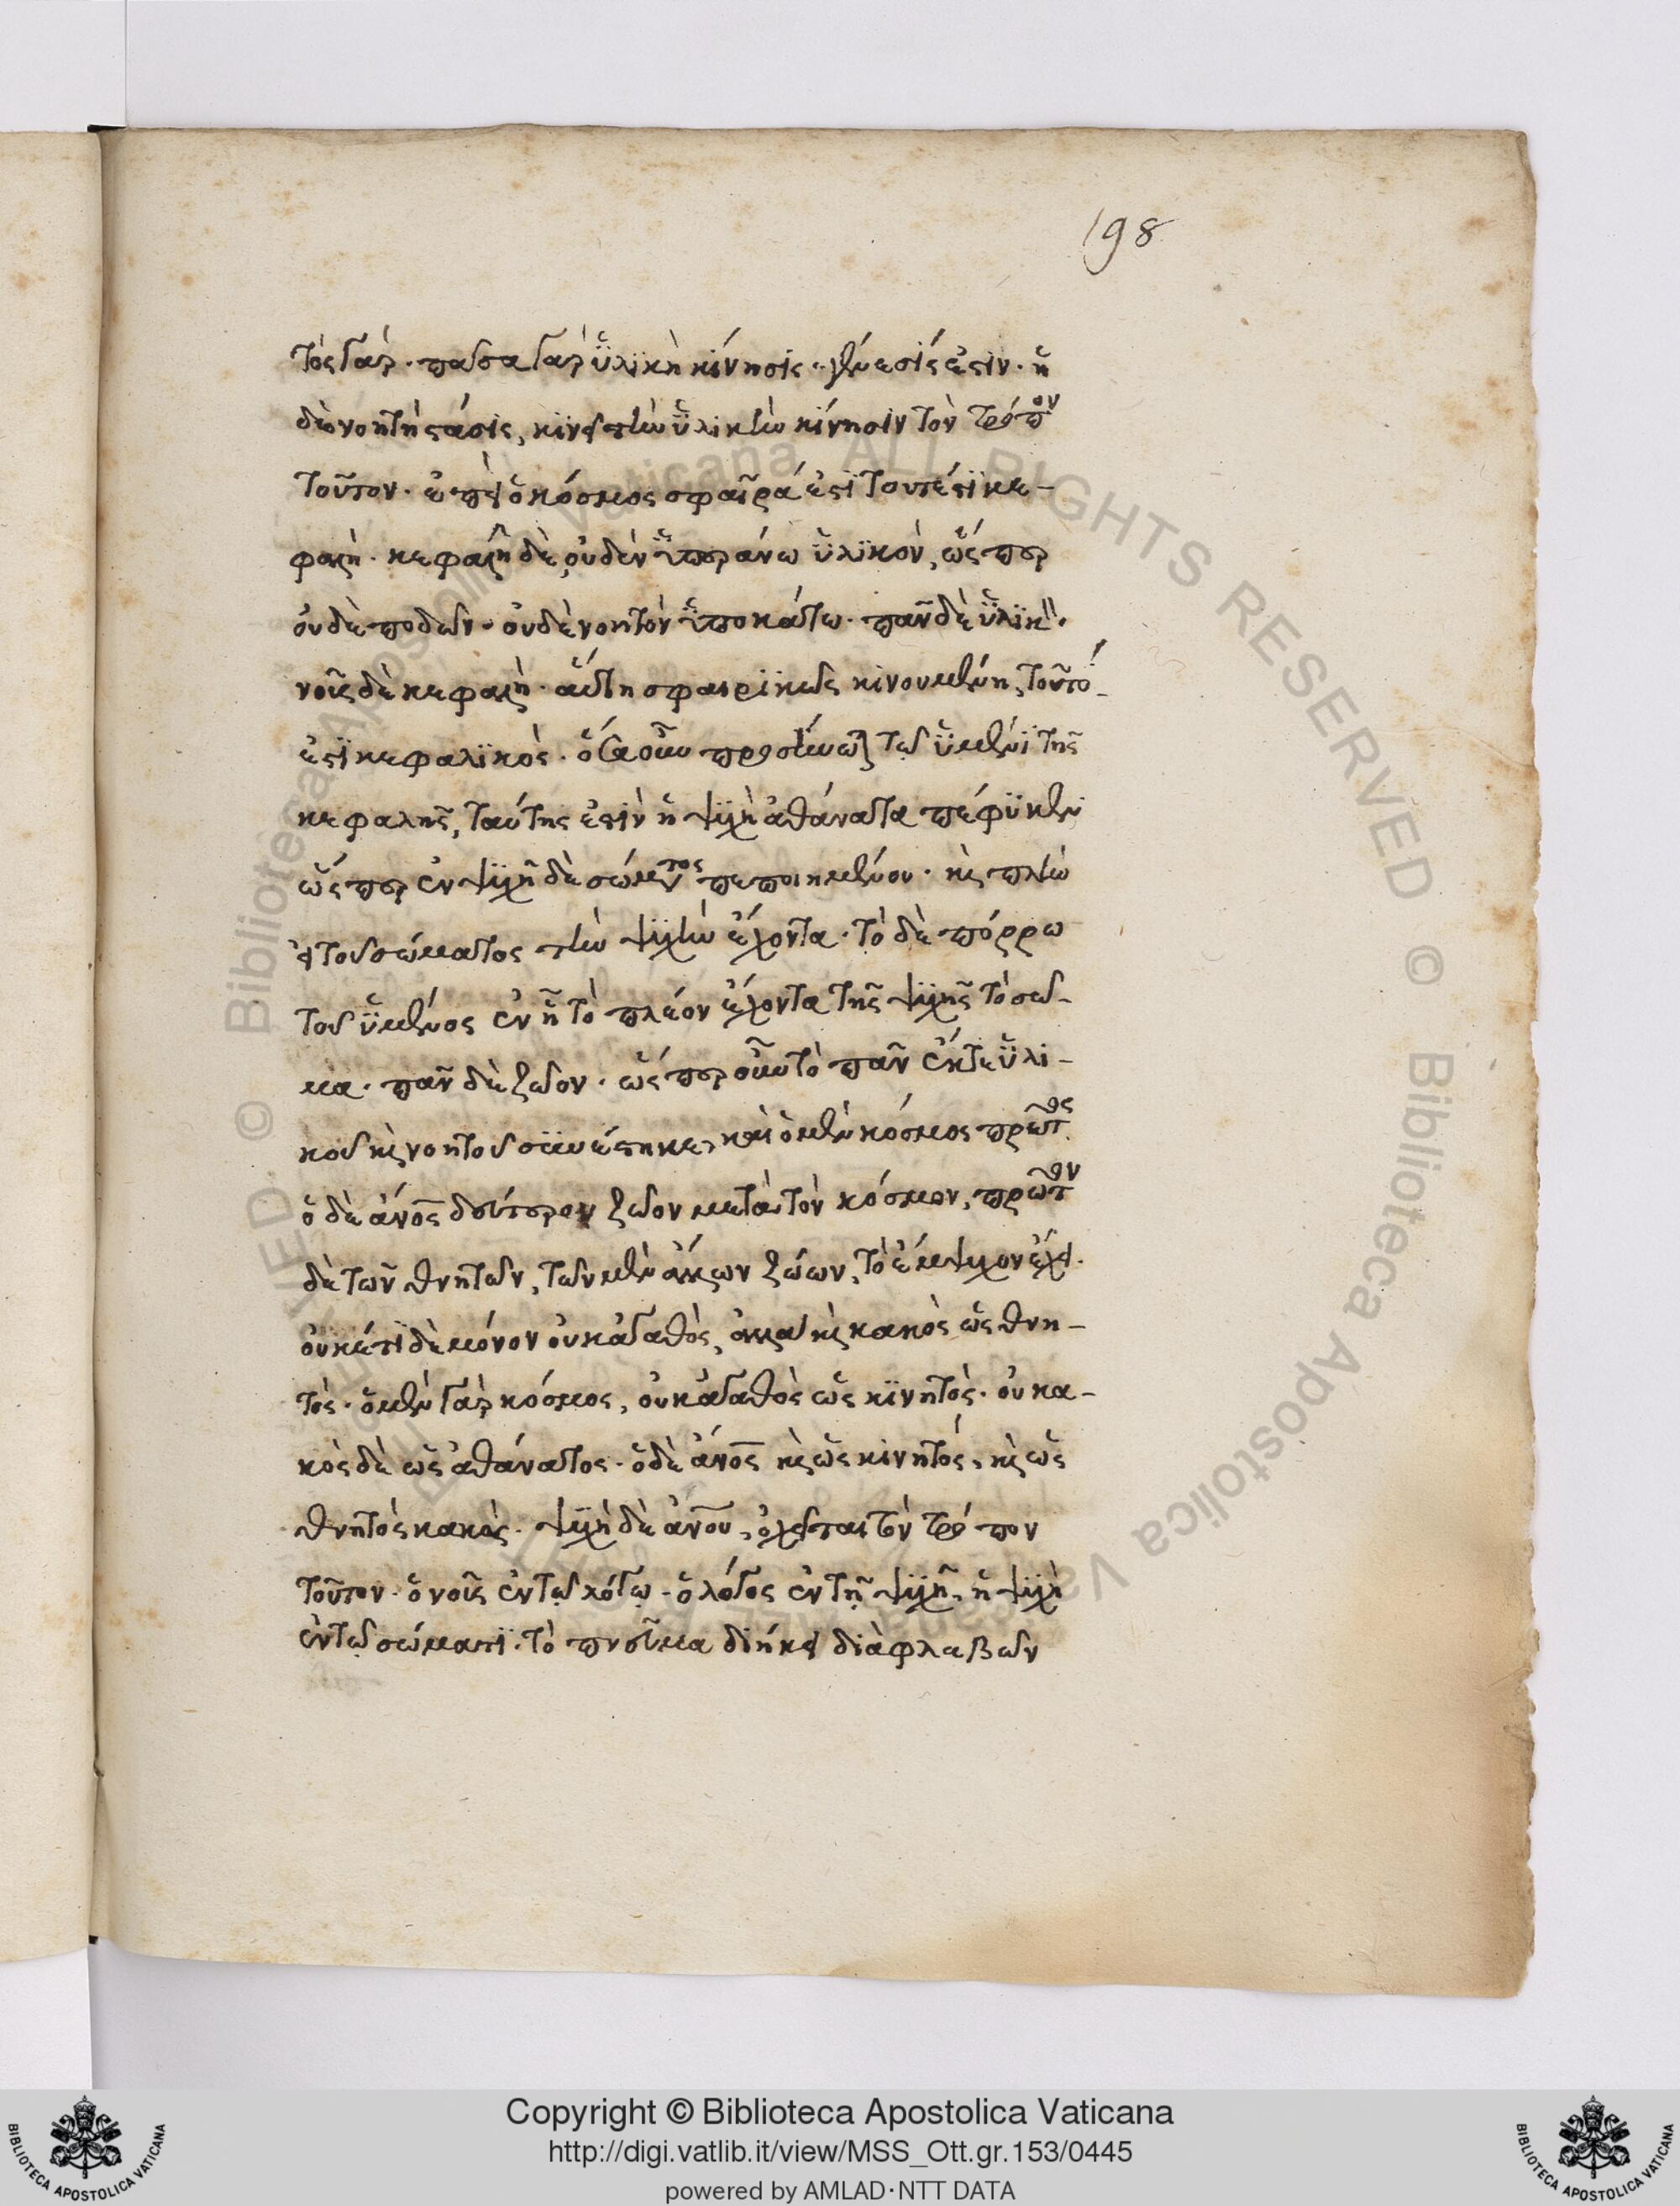 198
τὸς γάρ. πᾶσα γὰρ ὑλικὴ κίνησις γένεσίς ἐστιν. ἡ
δὲ νοητὴ στάσις, κινεῖ τὴν ὑλικὴν κίνησιν τὸν τρόπον
τοῦτον. ἐπεὶ ὁ κόσμος σφαῖρά ἐστι τουτέστι κε-
φαλὴ. κεφαλὴ δὲ οὐδὲν ὑπεράνω ὑλικὸν, ὥσπερ
οὐδὲ ποδῶν. οὐδὲ νοητὸν ὑποκάτω. πᾶν δὲ ὑλικὸν.
νοῦς δὲ κεφαλὴ. αὕτη σφαιρικῶς κινουμένη, τοῦτό
ἐστι κεφαλικὸς. ὅσα οὖν προσήνωται τῷ ὑμένι τῆς
κεφαλῆς, ταύτης ἐστὶν ἡ ψυχὴ ἀθάνατα πέφυκεν
ὥσπερ ἐν ψυχῇ δὲ σώματος πεποιημένου. καὶ πλὴν
εἰ τοῦ σώματος τὴν ψυχὴν ἔχοντα. τὸ δὲ πόρρω
τοῦ ὑμένος ἐν ᾗ τὸ πλέον ἔχοντα τῆς ψυχῆς τὸ σῶ-
μα. πᾶν δὲ ζῶον. ὥσπερ οὖν τὸ πᾶν ἔκ τε ὑλι-
κοῦ καὶ νοητοῦ συνέστηκε, καὶ ὁ μὲν κόσμος πρῶτος
ὁ δὲ ἄνος δεύτερον ζῶον μετὰ τὸν κόσμον, πρῶτον
δὲ τῶν θνητῶν, τῶν μὲν ἄλλων ζώων, τὸ ἔμψυχον ἔχει.
οὐκέτι δὲ μόνον οὐκ ἀγαθὸς, ἀλλὰ καὶ κακὸς ὡς θνη-
τὸς. ὁ μὲν γὰρ κόσμος, οὐκ ἀγαθὸς ὡς κινητὸς. οὐ κα-
κὸς δὲ ὡς ἀθάνατος. ὁ δὲ ἄνος καὶ ὡς κινητός, καὶ ὡς
θνητὸς κακὸς. ψυχὴ δὲ ἀνου, ὀχεῖται τὸν τρόπον
τοῦτον. ὁ νοῦς ἐν τῷ λόγῳ. ὁ λόγος ἐν τῇ ψυχῇ, ἡ ψυχὴ
ἐν τῷ σώματι. τὸ πνεῦμα διήκει διὰ φλεβῶν
Copyright © Biblioteca Apostolica Vaticana
http://digi.vatlib.it/view/MSS_Ott.gr.153/0445
powered by AMLAD·NTT DATA